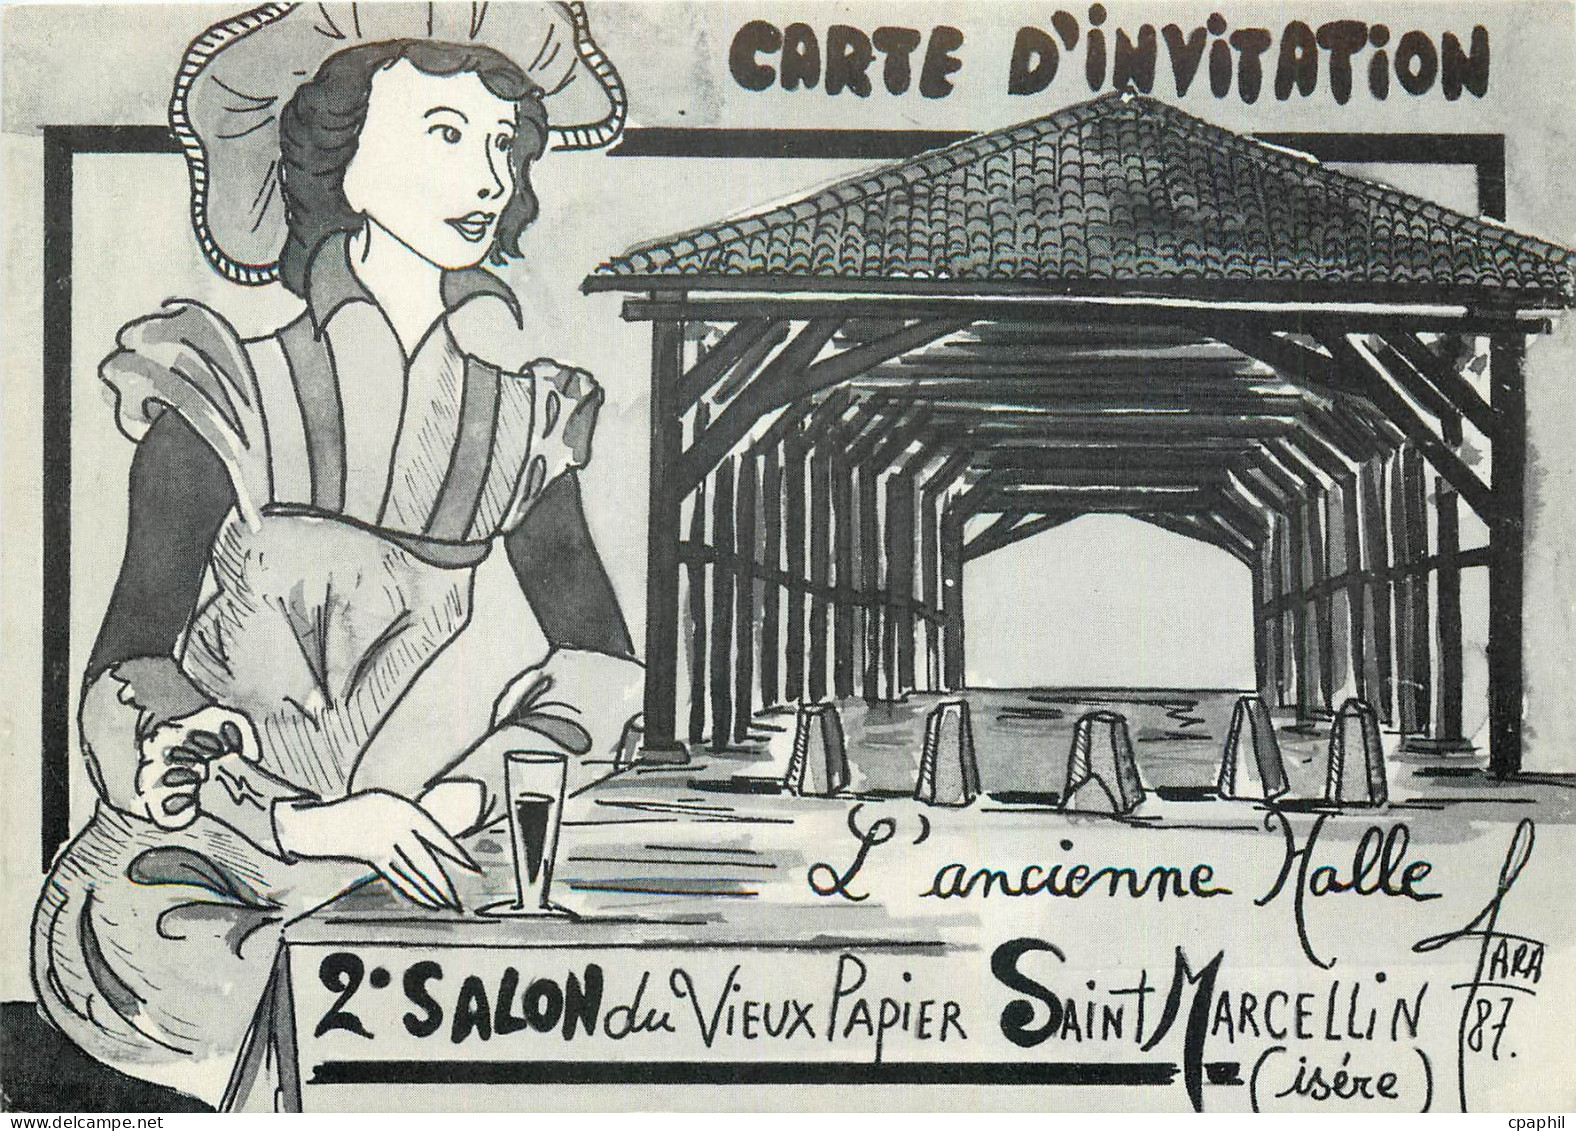 CARTE D'INVITATION
L'ancienne Halle
2e SALON du VIEUX PAPIER SAINT MARCELLIN
(isére)
JARA
87.
www.delcampe.net
cpaphil